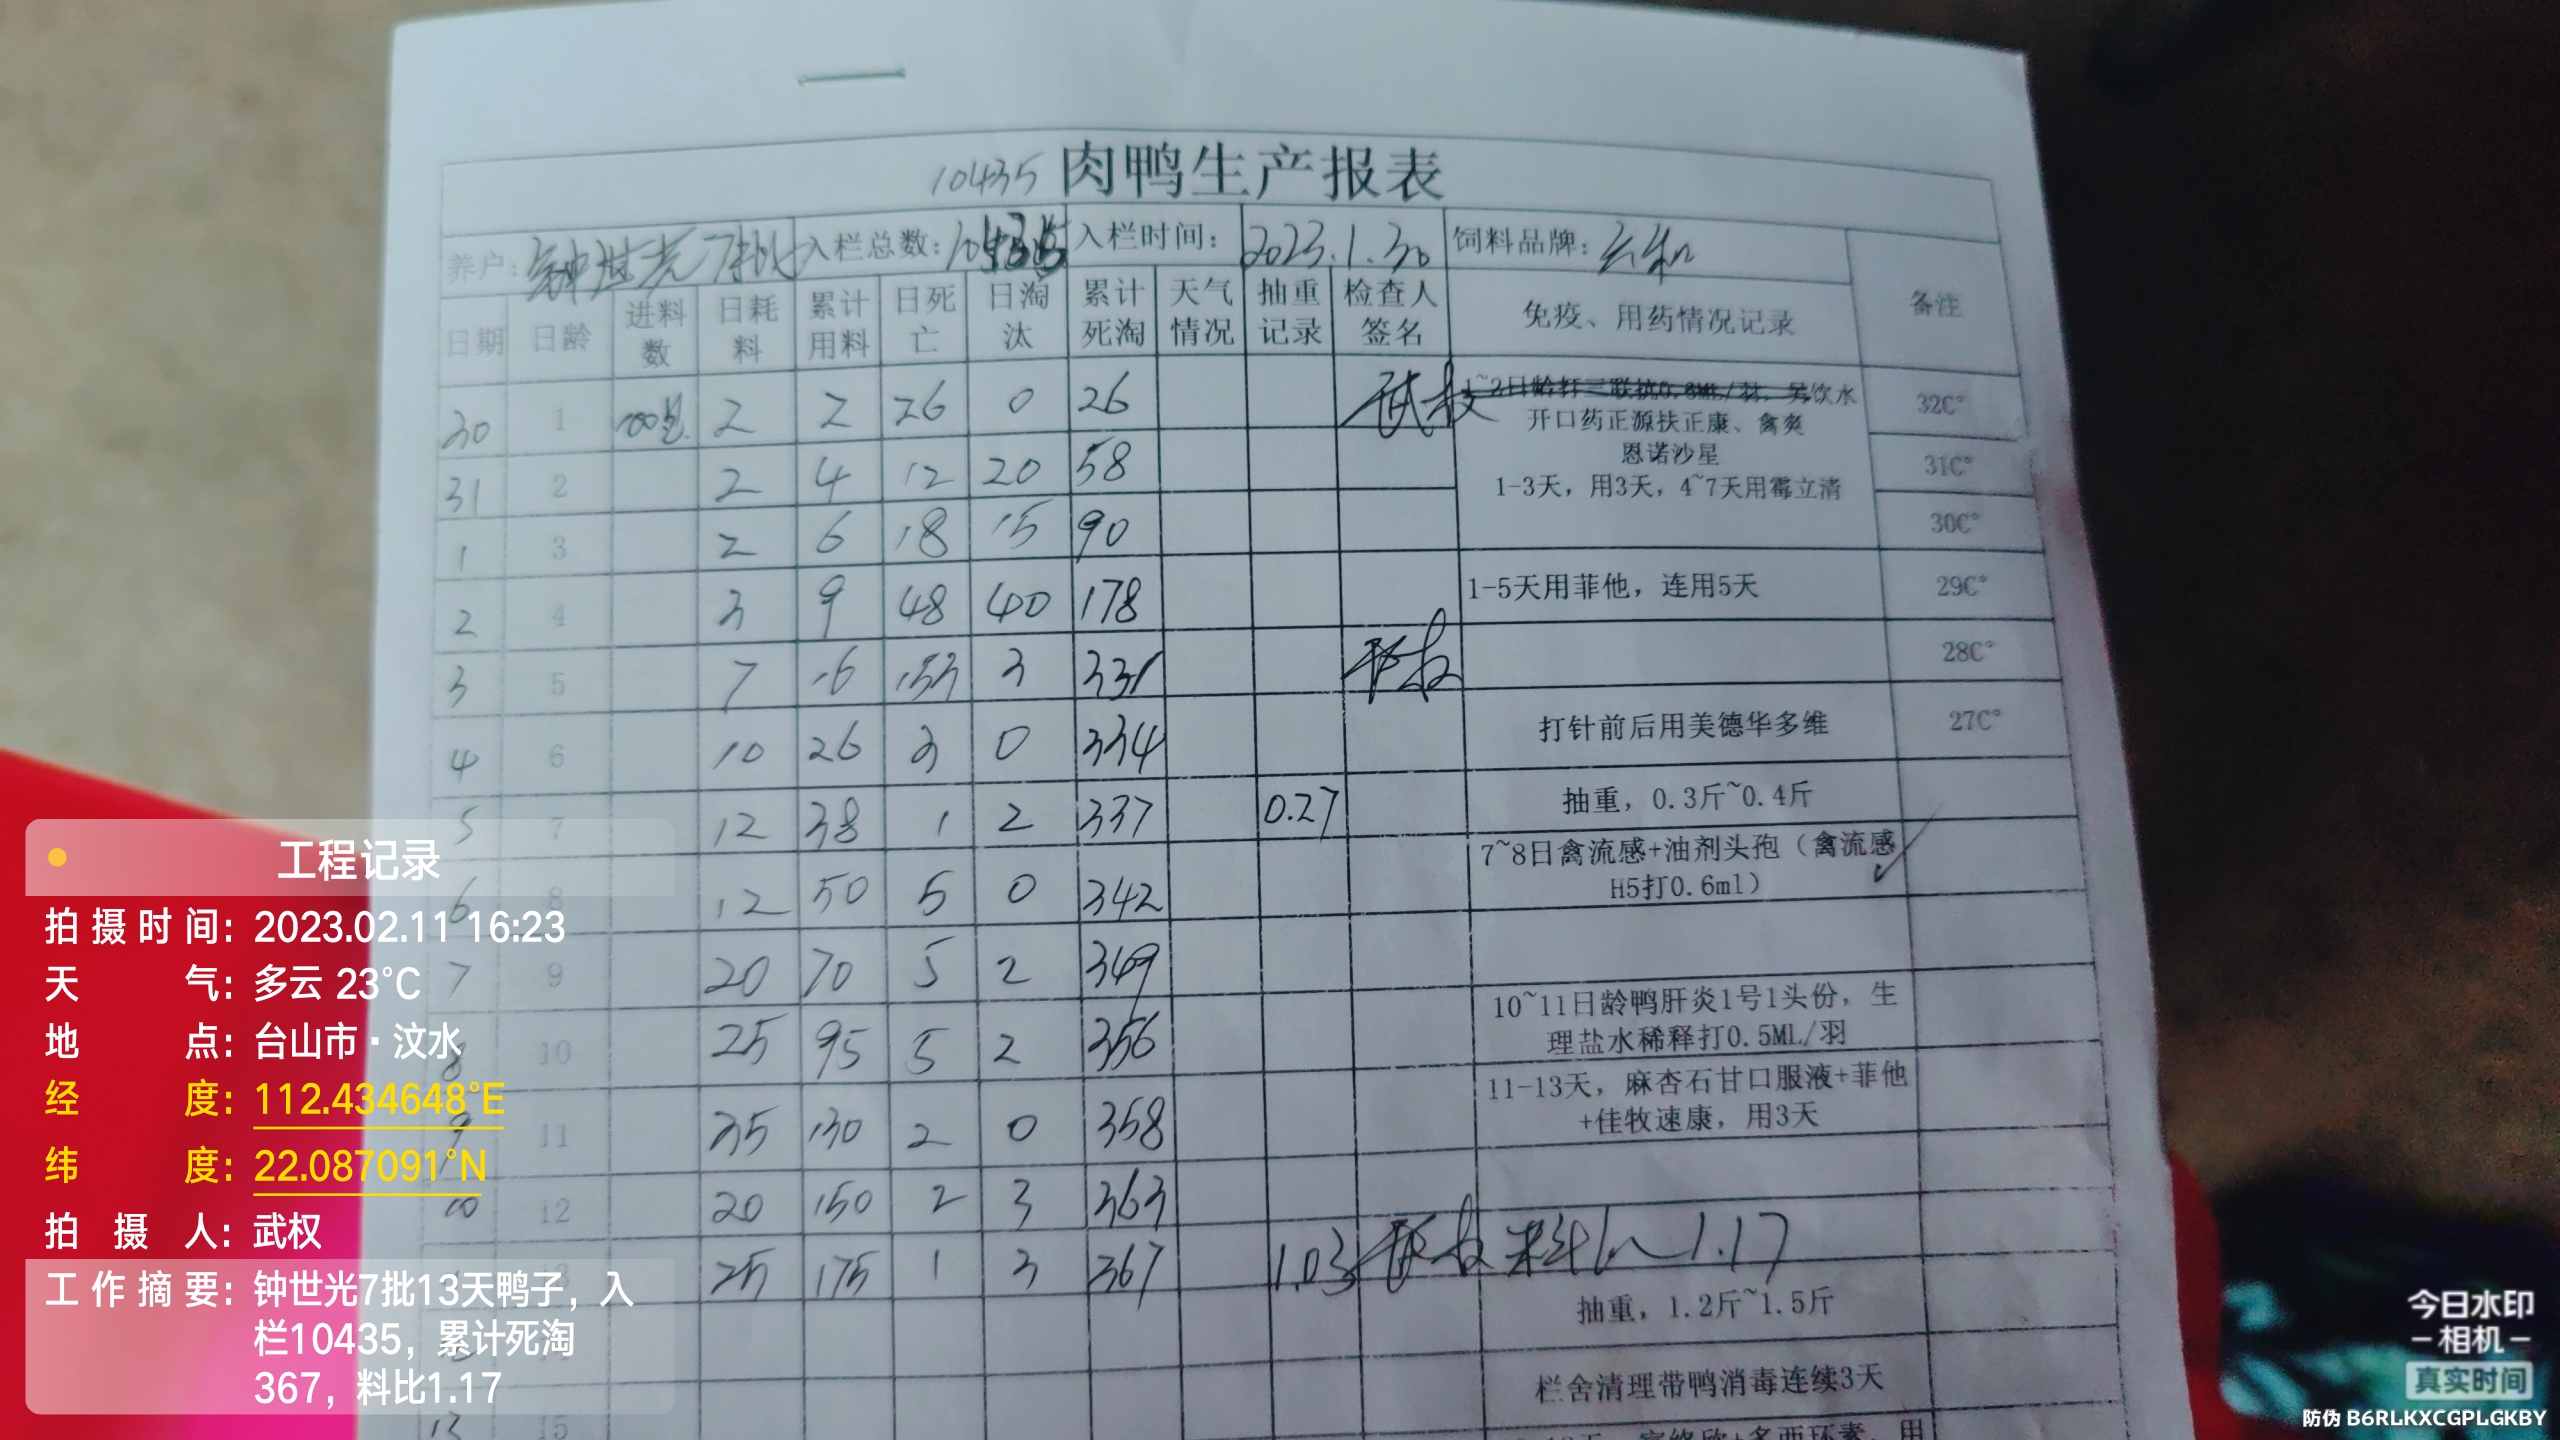 10435 肉鸭生产报表
养户: 钟世光7批 入栏总数: 10435 入栏时间: 2023.1.30 饲料品牌:
日期 日龄 进料数 日耗料 累计用料 日死亡 日淘汰 累计死淘 天气情况 抽重记录 检查人签名 免疫、用药情况记录 备注
30 1 100包 2 2 26 0 26 武权 1~2日龄打三联抗0.8ML/羽，另饮水 32C°
开口药正源扶正康、禽爽
恩诺沙星
31 2 2 4 12 20 58 31C°
1-3天，用3天，4~7天用霉立清
1 3 2 6 18 15 90 30C°
2 4 3 9 48 40 178 1-5天用菲他，连用5天 29C°
3 5 7 16 153 3 331 武权 28C°
4 6 10 26 3 0 334 打针前后用美德华多维 27C°
5 7 12 38 1 2 337 0.27 抽重，0.3斤~0.4斤
6 8 12 50 5 0 342 7~8日禽流感+油剂头孢（禽流感
H5打0.6ml）
7 9 20 70 5 2 349
8 10 25 95 5 2 356 10~11日龄鸭肝炎1号1头份，生
理盐水稀释打0.5ML/羽
9 11 35 130 2 0 358 11-13天，麻杏石甘口服液+菲他
+佳牧速康，用3天
10 12 20 150 2 3 363
13 25 175 1 3 367 1.03 武权 料比1.17
抽重，1.2斤~1.5斤
栏舍清理带鸭消毒连续3天
13 15
工程记录
拍摄时间: 2023.02.11 16:23
天气: 多云 23°C
地点: 台山市·汶水
经度: 112.434648°E
纬度: 22.087091°N
拍摄人: 武权
工作摘要: 钟世光7批13天鸭子，入
栏10435，累计死淘
367，料比1.17
今日水印
-相机-
真实时间
防伪 B6RLKXCGPLGKBY